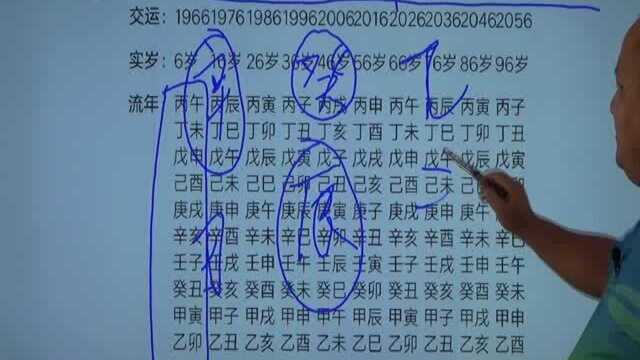 交运: 1966 1976 1986 1996 2006 2016 2026 2036 2046 2056
实岁: 6岁 16岁 26岁 36岁 46岁 56岁 66岁 76岁 86岁 96岁
流年: 丙午 丙辰 丙寅 丙子 丙戌 丙申 丙午 丙辰 丙寅 丙子
丁未 丁巳 丁卯 丁丑 丁亥 丁酉 丁未 丁巳 丁卯 丁丑
戊申 戊午 戊辰 戊寅 戊子 戊戌 戊申 戊午 戊辰 戊寅
己酉 己未 己巳 己卯 己丑 己亥 己酉 己未 己
庚戌 庚申 庚午 庚辰 庚寅 庚子 庚戌 庚申 庚午
辛亥 辛酉 辛未 辛巳 辛卯 辛丑 辛亥 辛酉 辛未 辛巳
壬子 壬戌 壬申 壬午 壬辰 壬寅 壬子 壬戌 壬申 壬午
癸丑 癸亥 癸酉 癸未 癸巳 癸卯 癸丑 癸亥 癸酉 癸未
甲寅 甲子 甲戌 甲申 甲午 甲辰 甲寅 甲子 甲戌 甲申
乙卯 乙丑 乙亥 乙酉 乙未 乙巳 乙卯 乙丑 乙亥 乙酉